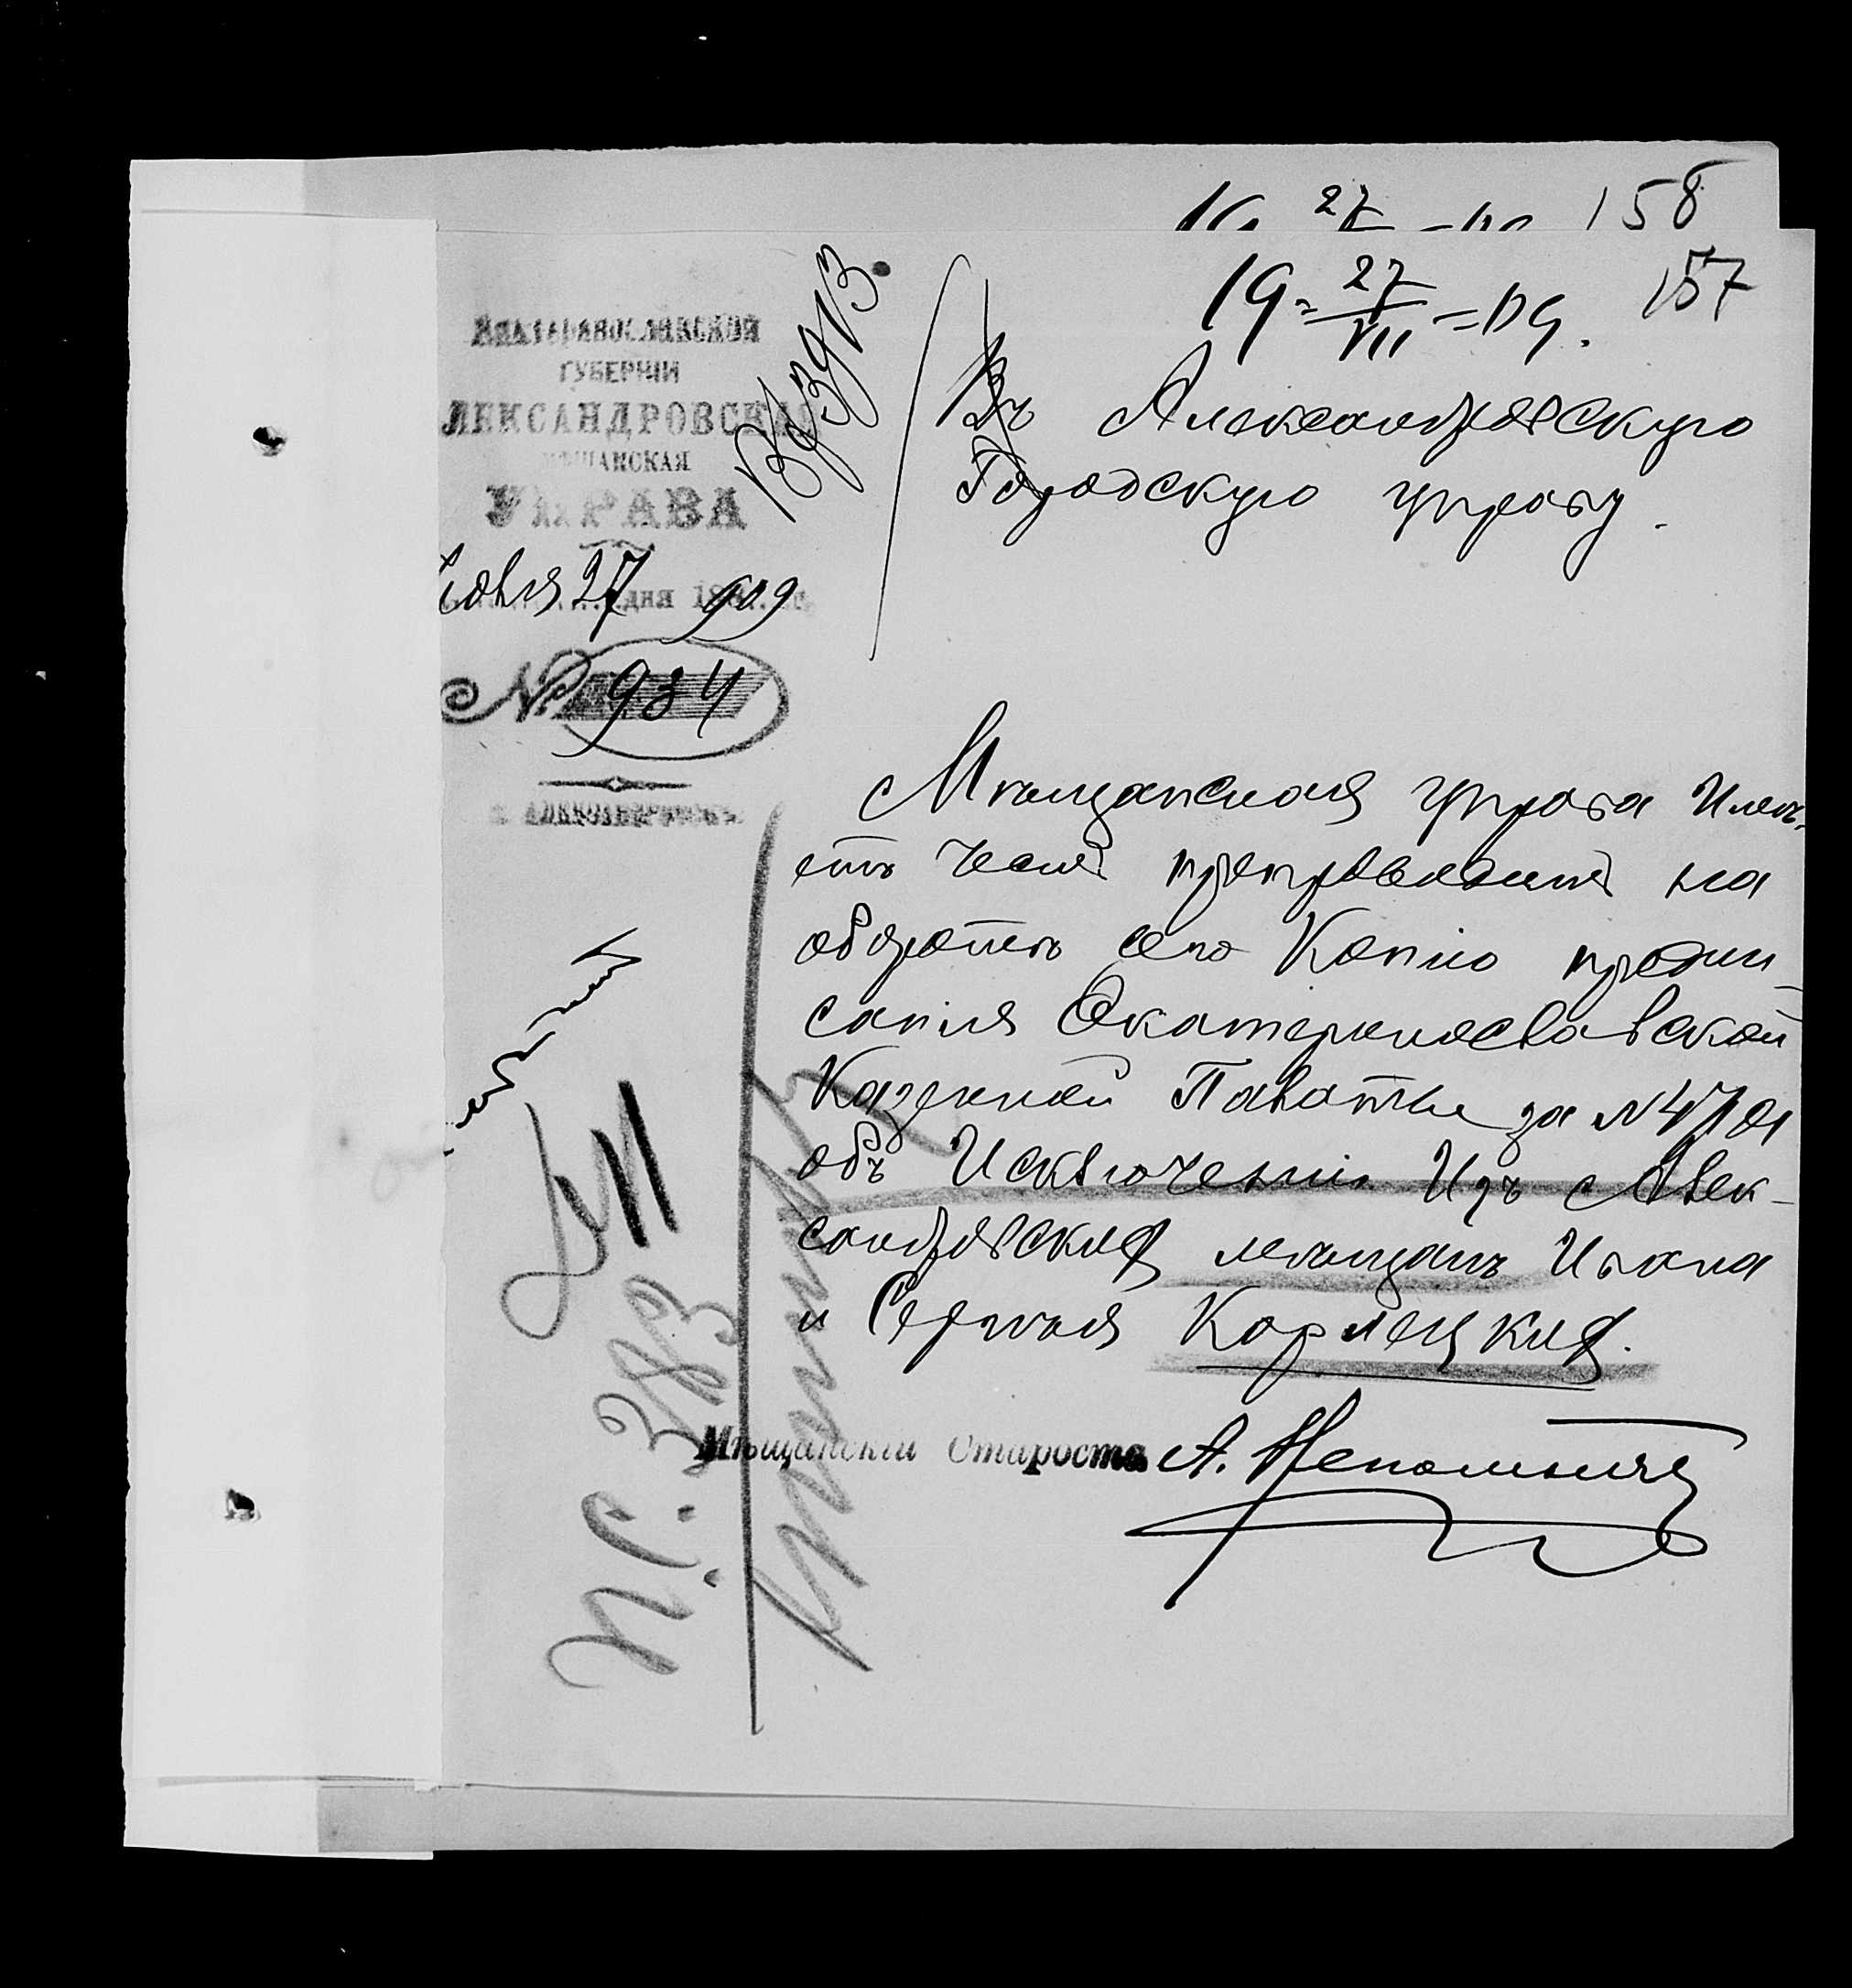 158
19 = 27/VII = 09. 157
Екатеринославской
губерніи
Александровская
мѣщанская
УПРАВА
Іюля 27 дня 1909
№ 934
г. Александровскъ.
Вх 3913.
Въ Александровскую
Городскую управу.
Мѣщанская управа имѣ-
етъ честь препроводить на
оборотѣ сего Копію предпи-
санія Екатеринославской
Казенной Палаты за №4701
объ Исключеніи Изъ Алек-
сандровскихъ мѣщанъ Ивана
и Сергѣя Кормецкихъ.
Мѣщанскій Староста А. Непомнящ
П.С. 383